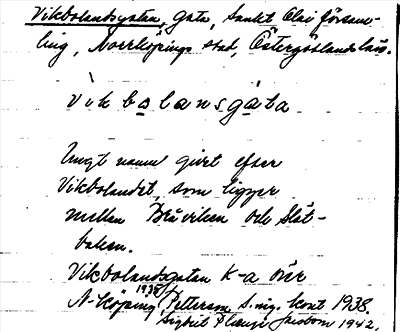 Vikbolandsgatan, gata, Sankt Olai försam-
ling, Norrköpings stad, Östergötlands län.
vikbolansgata
Ungt namn givet efter
Vikbolandet, som ligger
mellan Bråviken och Slät-
baken.
Vikbolandsgatan K-a över
N-köping 1938, Petterson S. ing. kont 1938
Sigrid 1942.